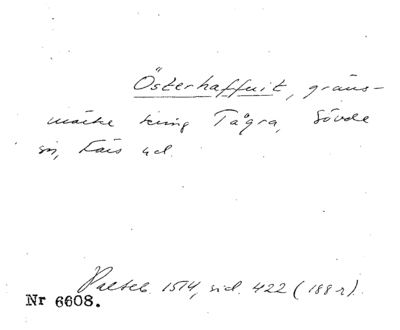 Österhaffuit, gräns-
märke kring Tågra, Sövde
sn, Färs hd.
Palteb. 1514, sid. 422 (188 r).
Nr 6608.